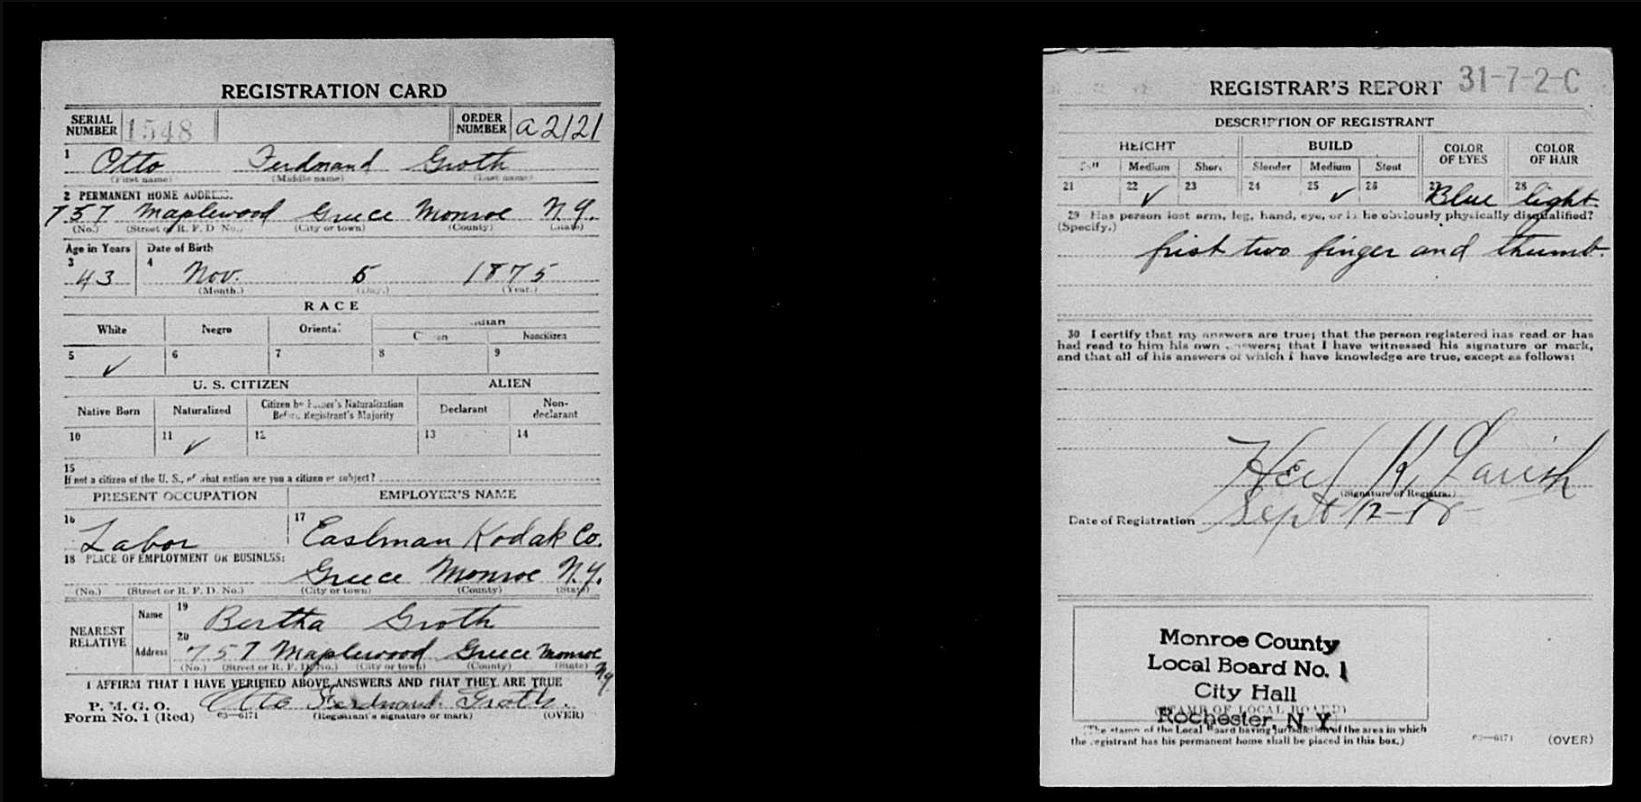 REGISTRATION CARD
SERIAL NUMBER 1548 ORDER NUMBER a2121
1 Otto Ferdnand Groth
(First name) (Middle name) (Last name)
2 PERMANENT HOME ADDRESS:
757 Maplewood Greece Monroe N.Y.
(No.) (Street or R. F. D. No.) (City or town) (County) (State)
Age in Years Date of Birth
3 43 4 Nov. 5 1875
(Month.) (Day.) (Year.)
RACE
White Negro Oriental Indian
Citizen Noncitizen
5 ✓ 6 7 8 9
U. S. CITIZEN ALIEN
Native Born Naturalized Citizen by Father's Naturalization Before Registrant's Majority Declarant Non-declarant
10 11 ✓ 12 13 14
15
If not a citizen of the U. S., of what nation are you a citizen or subject?
PRESENT OCCUPATION EMPLOYER'S NAME
16 Labor 17 Eastman Kodak Co.
18 PLACE OF EMPLOYMENT OR BUSINESS:
Greece Monroe N.Y.
(No.) (Street or R. F. D. No.) (City or town) (County) (State)
NEAREST RELATIVE Name 19 Bertha Groth
Address 20 757 Maplewood Greece Monroe N.Y.
(No.) (Street or R. F. D. No.) (City or town) (County) (State)
I AFFIRM THAT I HAVE VERIFIED ABOVE ANSWERS AND THAT THEY ARE TRUE
P. M. G. O.
Form No. 1 (Red) 03—6171 Otto Ferdnand Groth.
(Registrant's signature or mark) (OVER)
REGISTRAR'S REPORT 31-7-2-C
DESCRIPTION OF REGISTRANT
HEIGHT BUILD COLOR OF EYES COLOR OF HAIR
Tall Medium Short Slender Medium Stout
21 22 ✓ 23 24 25 ✓ 26 27 Blue 28 light
29 Has person lost arm, leg, hand, eye, or is he obviously physically disqualified?
(Specify.)
frist two finger and thumb.
30 I certify that my answers are true; that the person registered has read or has
had read to him his own answers; that I have witnessed his signature or mark,
and that all of his answers of which I have knowledge are true, except as follows:
K. Parish
(Signature of Registrar)
Date of Registration Sept 12-18
Monroe County
Local Board No. 1
City Hall
Rochester, N. Y.
(STAMP OF LOCAL BOARD)
(The stamp of the Local Board having jurisdiction of the area in which
the registrant has his permanent home shall be placed in this box.)
03—6171 (OVER)